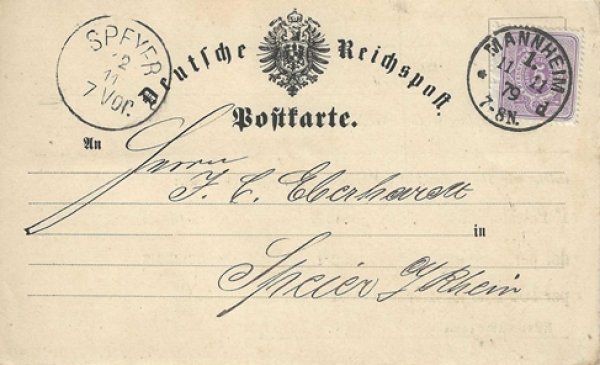 SPEYER
12
11
7 Vor.
Deutsche Reichspost.
MANNHEIM
1.
11 11
79
7-8N.
d
Postkarte.
An
Herrn
J. C. Eberhardt
in
Speier a/Rhein